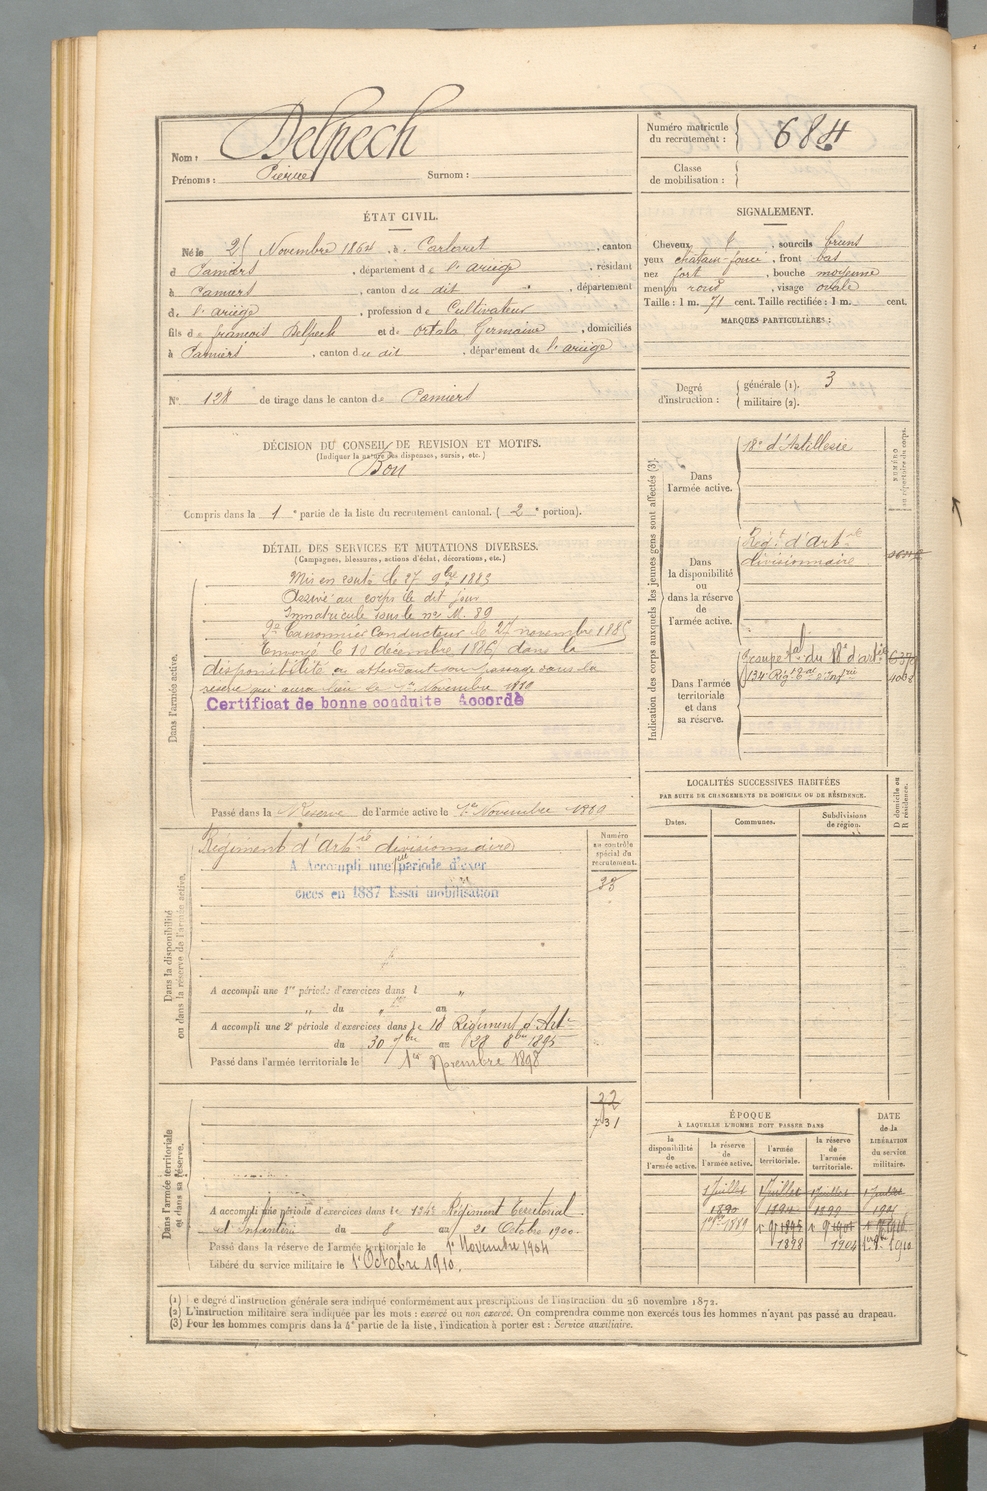 Nom : Delpech
Prénoms : Pierre Surnom :
Numéro matricule du recrutement : 684
Classe de mobilisation :
ÉTAT CIVIL.
Né le 25 Novembre 1864, à Carlaret, canton
d Pamiers, département de l'ariège, résidant
à Pamiers, canton du dit, département
de l'ariège, profession de Cultivateur
fils de françois Delpech et de Ortala Germaine, domiciliés
à Pamiers, canton du dit, département de l'ariège
SIGNALEMENT.
Cheveux, sourcils bruns
yeux chatain-foncé, front bas
nez fort, bouche moyenne
menton rond, visage ovale
Taille : 1 m. 71 cent. Taille rectifiée : 1 m. cent.
MARQUES PARTICULIÈRES :
N° 128 de tirage dans le canton de Pamiers
Degré d'instruction : générale (1). 3
militaire (2).
DÉCISION DU CONSEIL DE REVISION ET MOTIFS.
(Indiquer la nature des dispenses, sursis, etc.)
Bon
Compris dans la 1e partie de la liste du recrutement cantonal. (2e portion).
DÉTAIL DES SERVICES ET MUTATIONS DIVERSES.
(Campagnes, blessures, actions d'éclat, décorations, etc.)
Dans l'armée active.
Mis en route le 27 9bre 1885
Arrivé au corps le dit jour
Immatriculé sous le no M. 89
2e Canonnier Conducteur le 27 novembre 1885
Envoyé le 10 decembre 1886, dans la
disponibilité en attendant son passage dans la
reserve qui aura lieu le 1er Novembre 1889
Certificat de bonne conduite Accordé
Passé dans la Réserve de l'armée active le 1er Novembre 1889
Indication des corps auxquels les jeunes gens sont affectés (3).
NUMÉRO au répertoire du corps.
Dans l'armée active.
18e d'Artillerie
Dans la disponibilité ou dans la réserve de l'armée active.
Régt d'Artie
divisionnaire
Dans l'armée territoriale et dans sa réserve.
Groupe tal du 18e d'artie
134e Rég. d'Infrie
LOCALITÉS SUCCESSIVES HABITÉES
PAR SUITE DE CHANGEMENTS DE DOMICILE OU DE RÉSIDENCE.
Dates. Communes. Subdivisions de région. D domicile ou R résidence.
Dans la disponibilité ou dans la réserve de l'armée active.
Numéro au contrôle spécial du recrutement.
Régiment d'Artie divisionnaire
A Accompli une 1re période d'exer
cices en 1887 Essai mobilisation
35
A accompli une 1re période d'exercices dans l "
" du " au "
A accompli une 2e période d'exercices dans le 18 Régiment d'Art
du 30 7bre au 28 8bre 1895
Passé dans l'armée territoriale le 1er Novembre 1898
Dans l'armée territoriale et dans sa réserve.
22
731
A accompli une période d'exercices dans le 134e Régiment Territorial
d'Infanterie du 8 au 20 Octobre 1900
Passé dans la réserve de l'armée territoriale le 1er Novembre 1904
Libéré du service militaire le 1er Octobre 1910.
ÉPOQUE
À LAQUELLE L'HOMME DOIT PASSER DANS
la disponibilité de l'armée active. la réserve de l'armée active. l'armée territoriale. la réserve de l'armée territoriale.
DATE de la LIBÉRATION du service militaire.
1 Juillet 1 Juillet 1 Juillet 1 Juillet
1890
1898 1904
(1) Le degré d'instruction générale sera indiqué conformément aux prescriptions de l'instruction du 26 novembre 1872.
(2) L'instruction militaire sera indiquée par les mots : exercé ou non exercé. On comprendra comme non exercés tous les hommes n'ayant pas passé au drapeau.
(3) Pour les hommes compris dans la 4e partie de la liste, l'indication à porter est : Service auxiliaire.